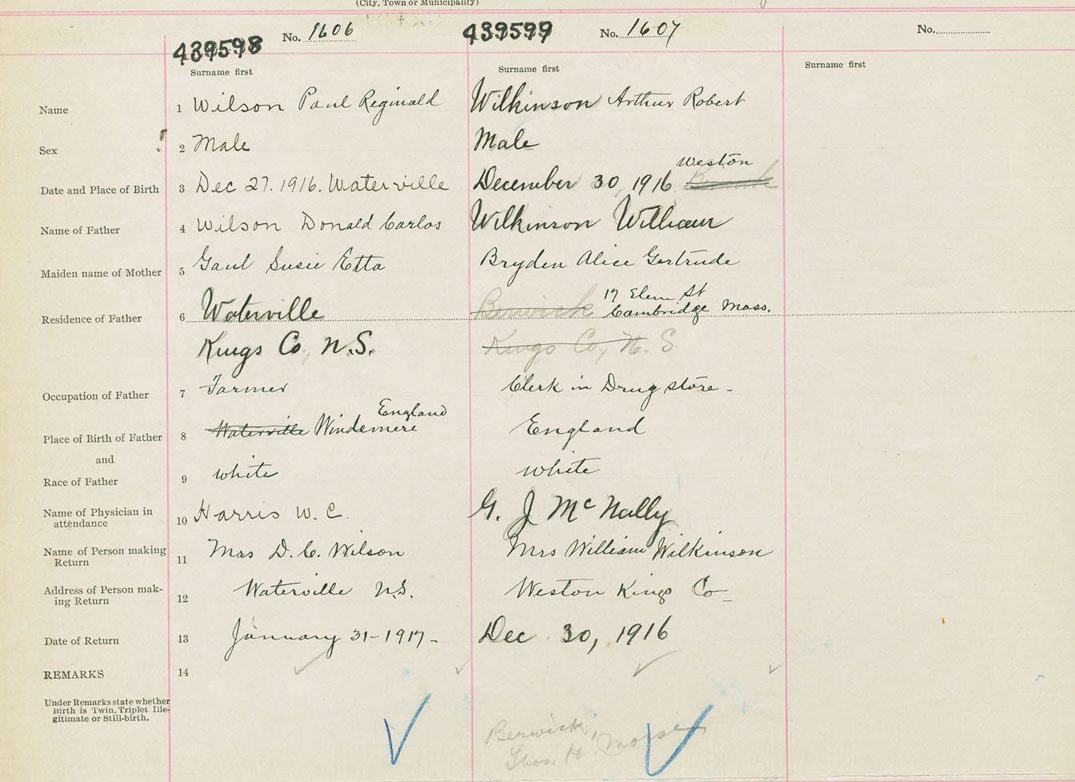 (City, Town or Municipality)
439598 No. 1606
439599 No. 1607
No.
Surname first
Surname first
Surname first
Name
1 Wilson Paul Reginald
Wilkinson Arthur Robert
Sex
2 Male
Male
Date and Place of Birth
3 Dec 27. 1916. Waterville
Weston
December 30, 1916 Berwick
Name of Father
4 Wilson Donald Carlos
Wilkinson William
Maiden name of Mother
5 Gaul Susie Etta
Bryden Alice Gertrude
Residence of Father
6 Waterville
Kings Co, N.S.
17 Elem St
Berwick Cambridge Mass.
Kings Co, N. S.
Occupation of Father
7 Farmer
Clerk in Drug store -
Place of Birth of Father
England
8 Waterville Windemere
England
and
Race of Father
9 white
white
Name of Physician in
attendance
10 Harris W. C.
G. J McNally
Name of Person making
Return
11 Mrs D. C. Wilson
Mrs William Wilkinson
Address of Person mak-
ing Return
12 Waterville N.S.
Weston Kings Co -
Date of Return
13 January 31-1917-
Dec 30, 1916
REMARKS
14
Under Remarks state whether
Birth is Twin, Triplet Ille-
gitimate or Still-birth.
Berwick,
Thos. H. Morse